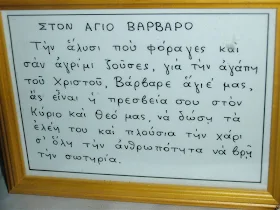 ΣΤΟΝ ΑΓΙΟ ΒΑΡΒΑΡΟ
Τήν ἅλυσι πού φόραγες καί
σάν ἀγρίμι ζοῦσες, γιά τήν ἀγάπη
τοῦ Χριστοῦ, Βάρβαρε ἅγιέ μας,
ἄς εἶναι ἡ πρεσβεία σου στόν
Κύριο καί Θεό μας, νά δώση τά
ἐλέη του καί πλούσια τήν χάρι
σ' ὅλη τήν ἀνθρωπότητα νά βρῆ
τήν σωτηρία.